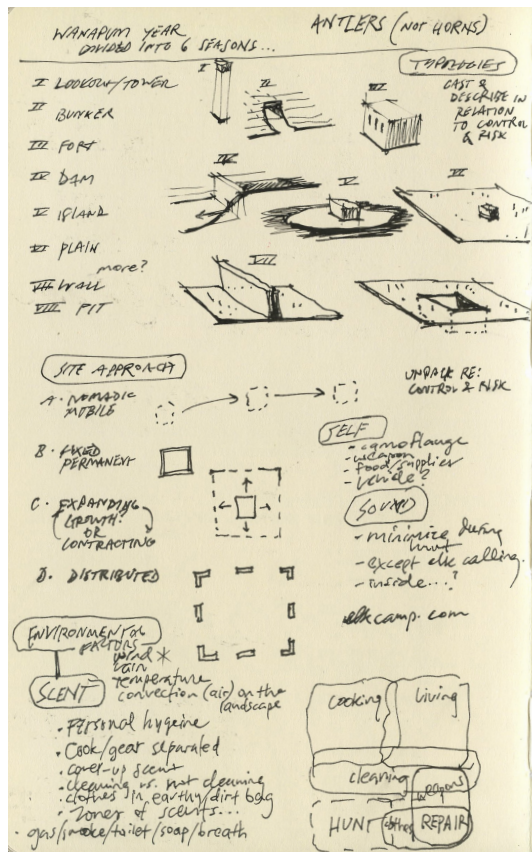 WANAPUM YEAR
DIVIDED INTO 6 SEASONS...
ANTLERS (NOT HORNS)
TYPOLOGIES
CAST &
DESCRIBE IN
RELATION
TO CONTROL
& RISK
I LOOKOUT/TOWER
II BUNKER
III FORT
IV DAM
V ISLAND
VI PLAIN
more?
VII WALL
VIII PIT
I
II
III
IV
V
VI
VII
SITE APPROACH
A. NOMADIC
MOBILE
B. FIXED
PERMANENT
C. EXPANDING
GROWTH?
OR
CONTRACTING
D. DISTRIBUTED
UNPACK RE:
CONTROL & RISK
SELF
- camoflauge
- weapon
- food/supplies
- vehicle?
SOUND
- minimize during
hunt
- except elk calling.
- inside...?
elkcamp.com
ENVIRONMENTAL
FACTORS
wind *
rain
temperature
convection (air) on the
landscape
SCENT
• Personal hygeine
• Cook/gear separated
• cover-up scent
• cleaning vs. not cleaning
• clothes in earthy/dirt bag
• zones of scents...
• gas/smoke/toilet/soap/breath
cooking
living
cleaning
weapons
HUNT
clothes
REPAIR